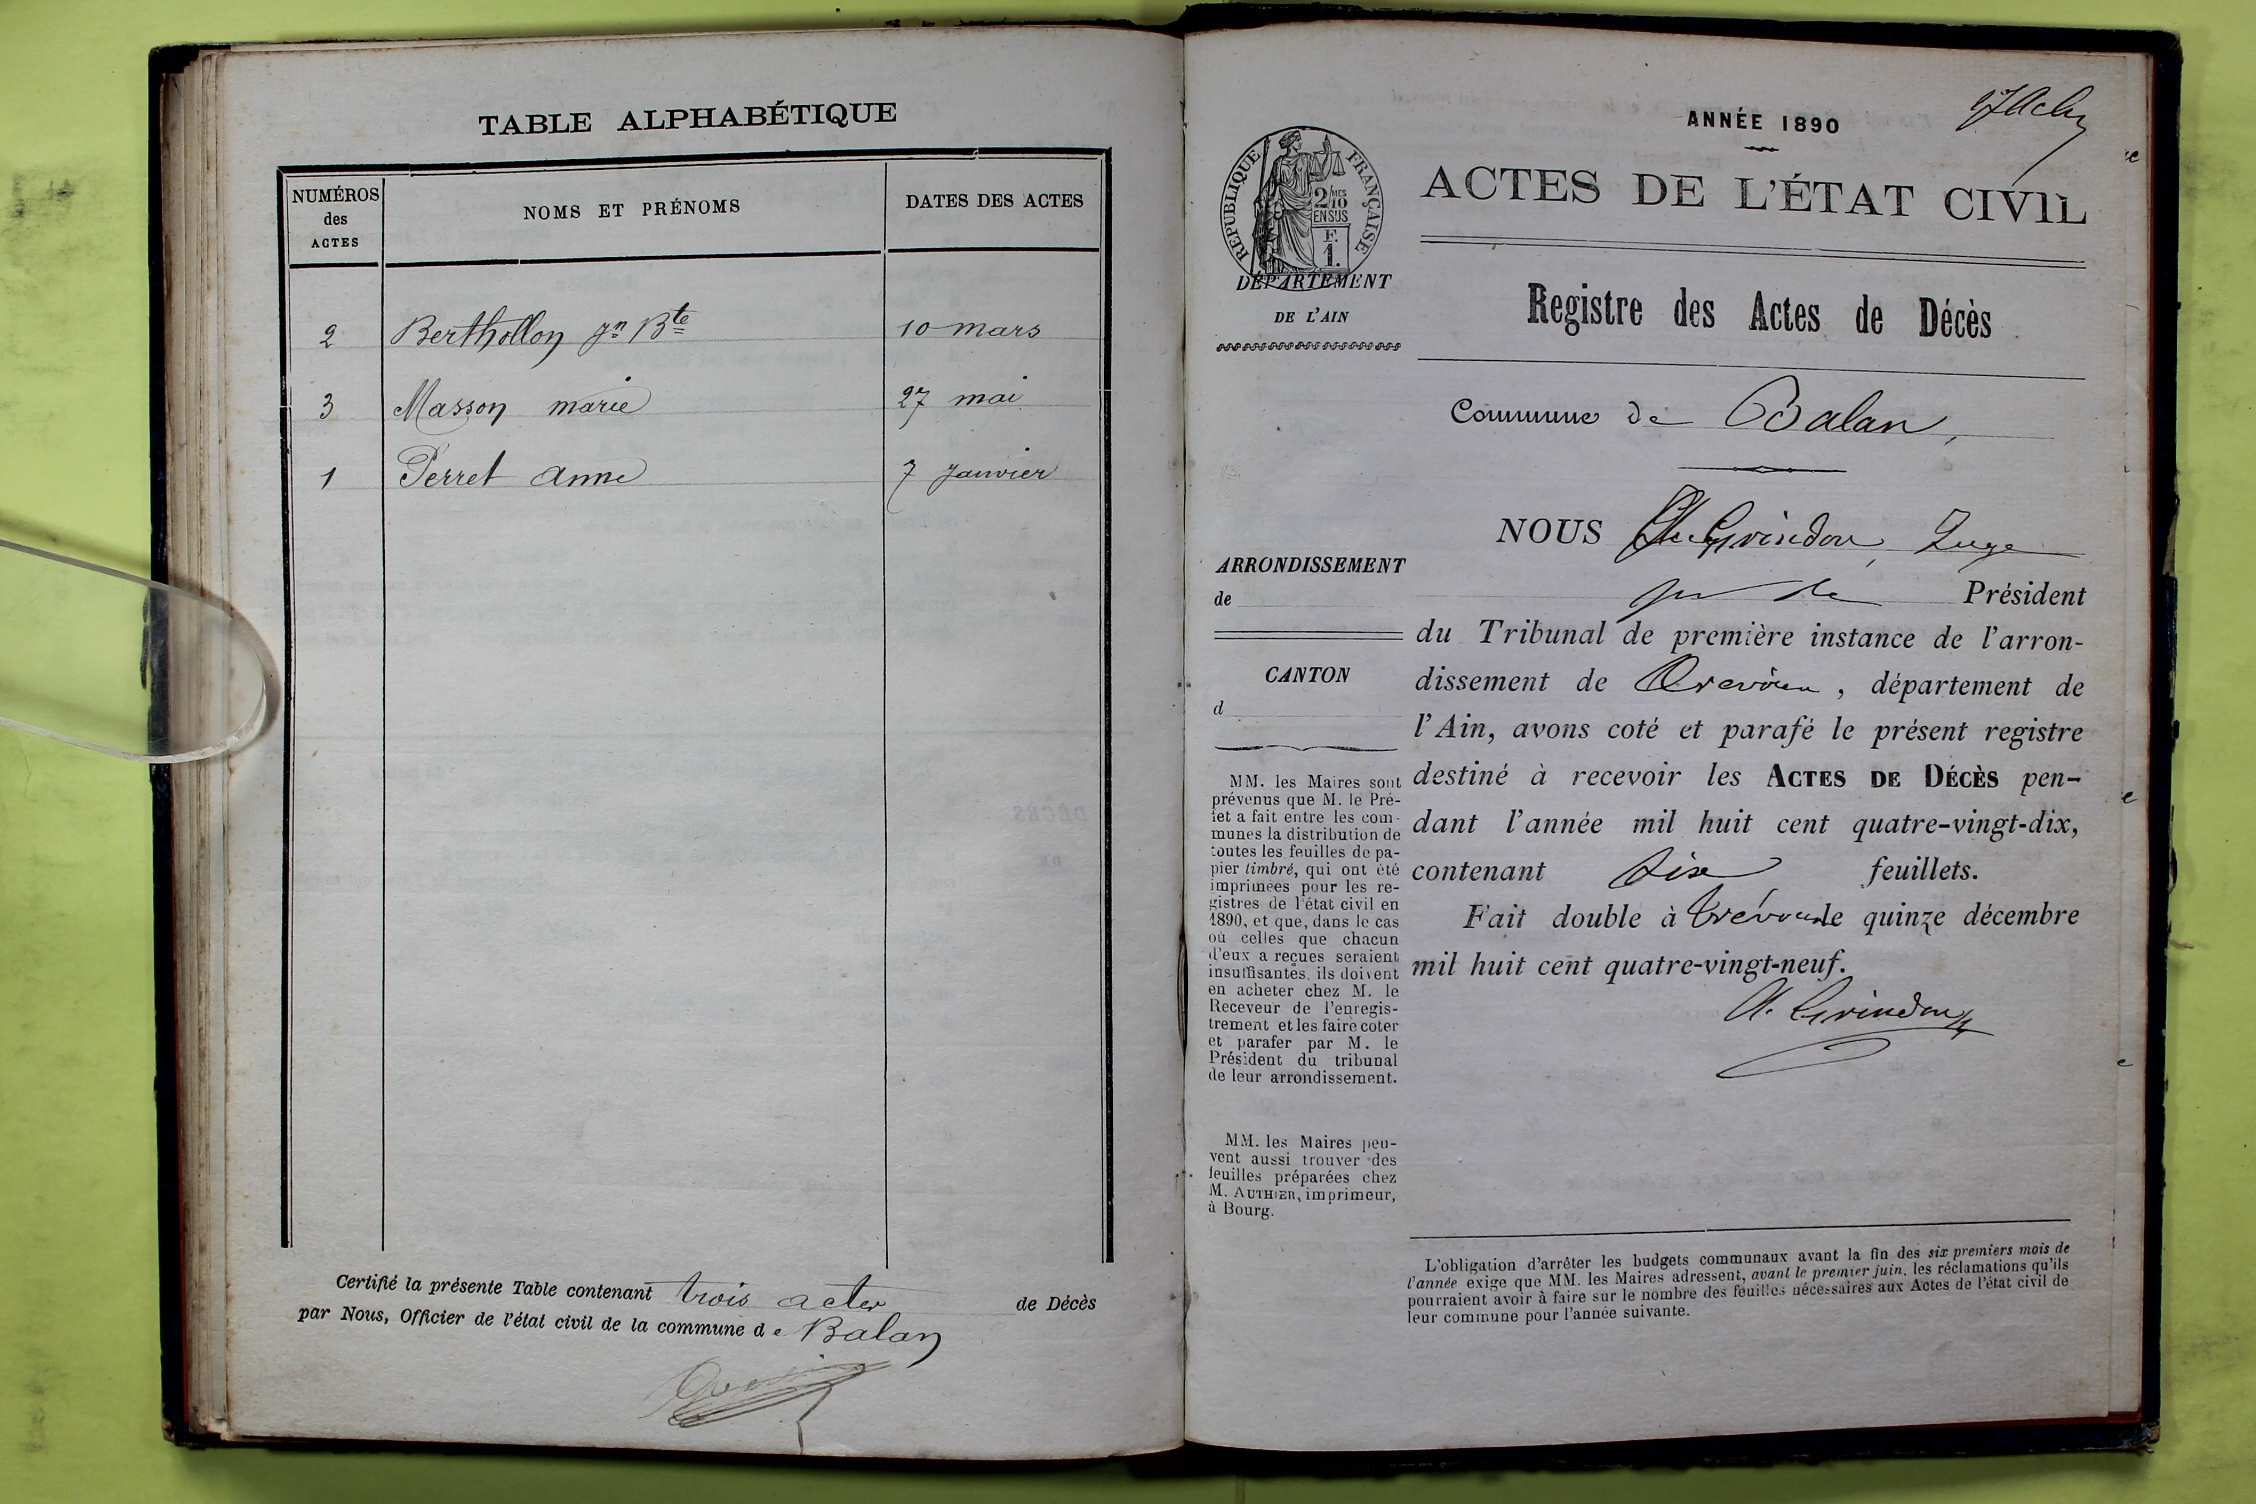 TABLE ALPHABÉTIQUE
NUMÉROS des ACTES
NOMS ET PRÉNOMS
DATES DES ACTES
2 Berthollon Jn Bte 10 mars
3 Masson marie 27 mai
1 Perret anne 7 Janvier
Certifié la présente Table contenant trois actes de Décès
par Nous, Officier de l'état civil de la commune de Balan
ANNÉE 1890
ACTES DE L'ÉTAT CIVIL
RÉPUBLIQUE FRANÇAISE
2/10 EN SUS
F. 1.
DÉPARTEMENT
DE L'AIN
Registre des Actes de Décès
Commune de Balan,
ARRONDISSEMENT
de
CANTON
d
MM. les Maires sont
prévenus que M. le Pré-
fet a fait entre les com-
munes la distribution de
toutes les feuilles de pa-
pier timbré, qui ont été
imprimées pour les re-
gistres de l'état civil en
1890, et que, dans le cas
où celles que chacun
d'eux a reçues seraient
insuffisantes, ils doivent
en acheter chez M. le
Receveur de l'enregis-
trement et les faire coter
et parafer par M. le
Président du tribunal
de leur arrondissement.
MM. les Maires peu-
vent aussi trouver des
feuilles préparées chez
M. AUTHIER, imprimeur,
à Bourg.
NOUS Grindon, Juge
Président
du Tribunal de première instance de l'arron-
dissement de Trévoux, département de
l'Ain, avons coté et parafé le présent registre
destiné à recevoir les ACTES DE DÉCÈS pen-
dant l'année mil huit cent quatre-vingt-dix,
contenant six feuillets.
Fait double à Trévoux le quinze décembre
mil huit cent quatre-vingt-neuf.
A. Grindon
L'obligation d'arrêter les budgets communaux avant la fin des six premiers mois de
l'année exige que MM. les Maires adressent, avant le premier juin, les réclamations qu'ils
pourraient avoir à faire sur le nombre des feuilles nécessaires aux Actes de l'état civil de
leur commune pour l'année suivante.